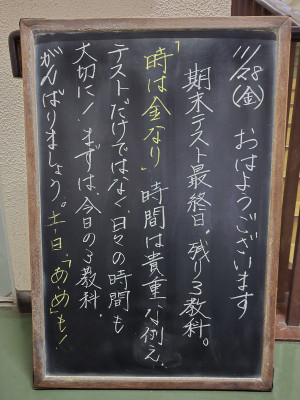 11/28㊎ おはようございます
期末テスト最終日。残り3教科。
「時は金なり」時間は貴重な例え.
テストだけではなく、日々の時間も
大切に！まずは、今日の3教科.
がんばりましょう。土・日、「あ・め」も！